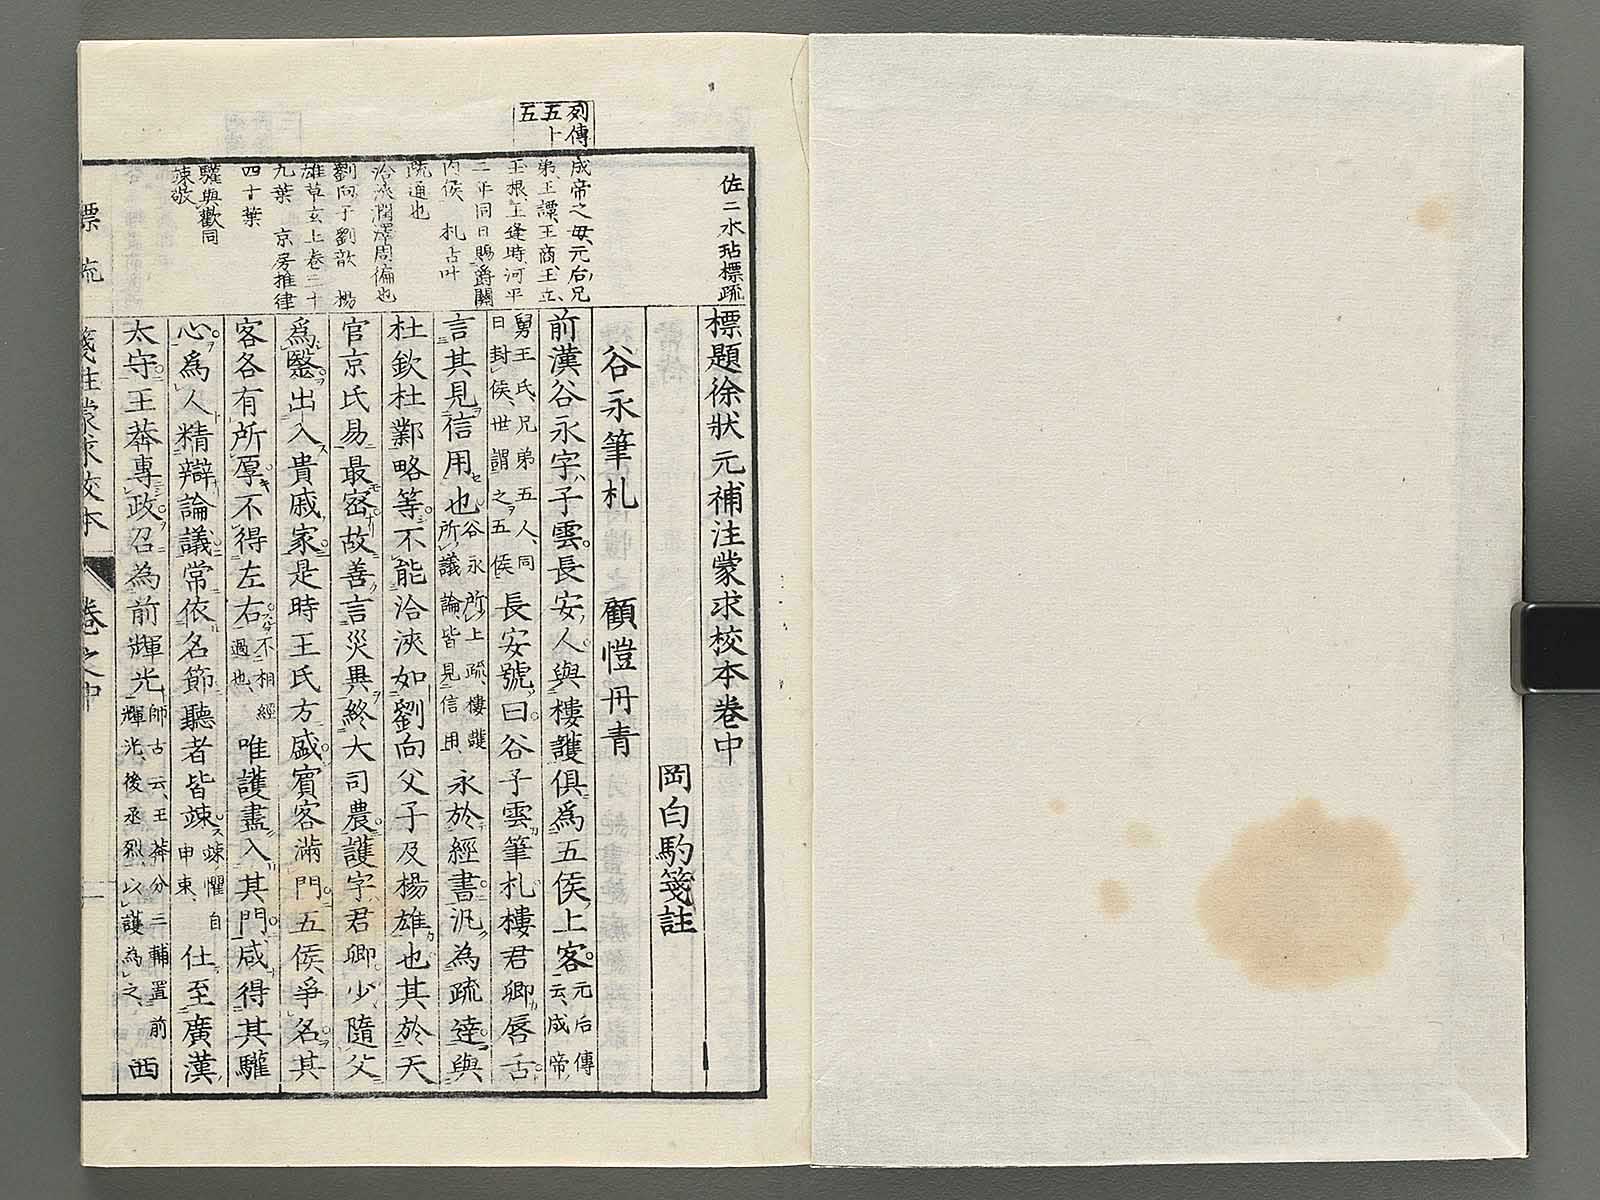 標題徐狀元補注蒙求校本卷中
岡白駒箋註
谷永筆札　顧愷丹青
前漢谷永字子雲長安人與樓護俱爲五侯上客元后傳云成帝
舅王氏兄弟五人同日封侯世謂之五侯長安號曰谷子雲筆札樓君卿唇舌
言其見信用也谷永所上疏樓護所議論皆見信用永於經書汎為疏達與
杜欽杜鄴略等不能洽浹如劉向父子及楊雄也其於天
官京氏易最密故善言災異終大司農護字君卿少隨父
爲醫出入貴戚家是時王氏方盛賓客滿門五侯爭名其
客各有所厚不得左右不相經過也唯護盡入其門咸得其驩
心爲人精辯論議常依名節聽者皆竦竦懼自申東仕至廣漢
太守王莽專政召為前輝光師古云王莽分三輔置前輝光後丞烈以護為之西
佐二水玷標疏
列傳五十五
成帝之毋元后兄
弟王譚王商王立
王根王逢時河平
二年同日賜爵關
內侯　札占叶
疏通也
洽浹周澤周徧也
劉向子劉歆　楊
雄草玄上卷三十
九葉　京房推律
四十葉
驩與歡同
竦敬
標疏
箋註蒙求校本　卷之中　一